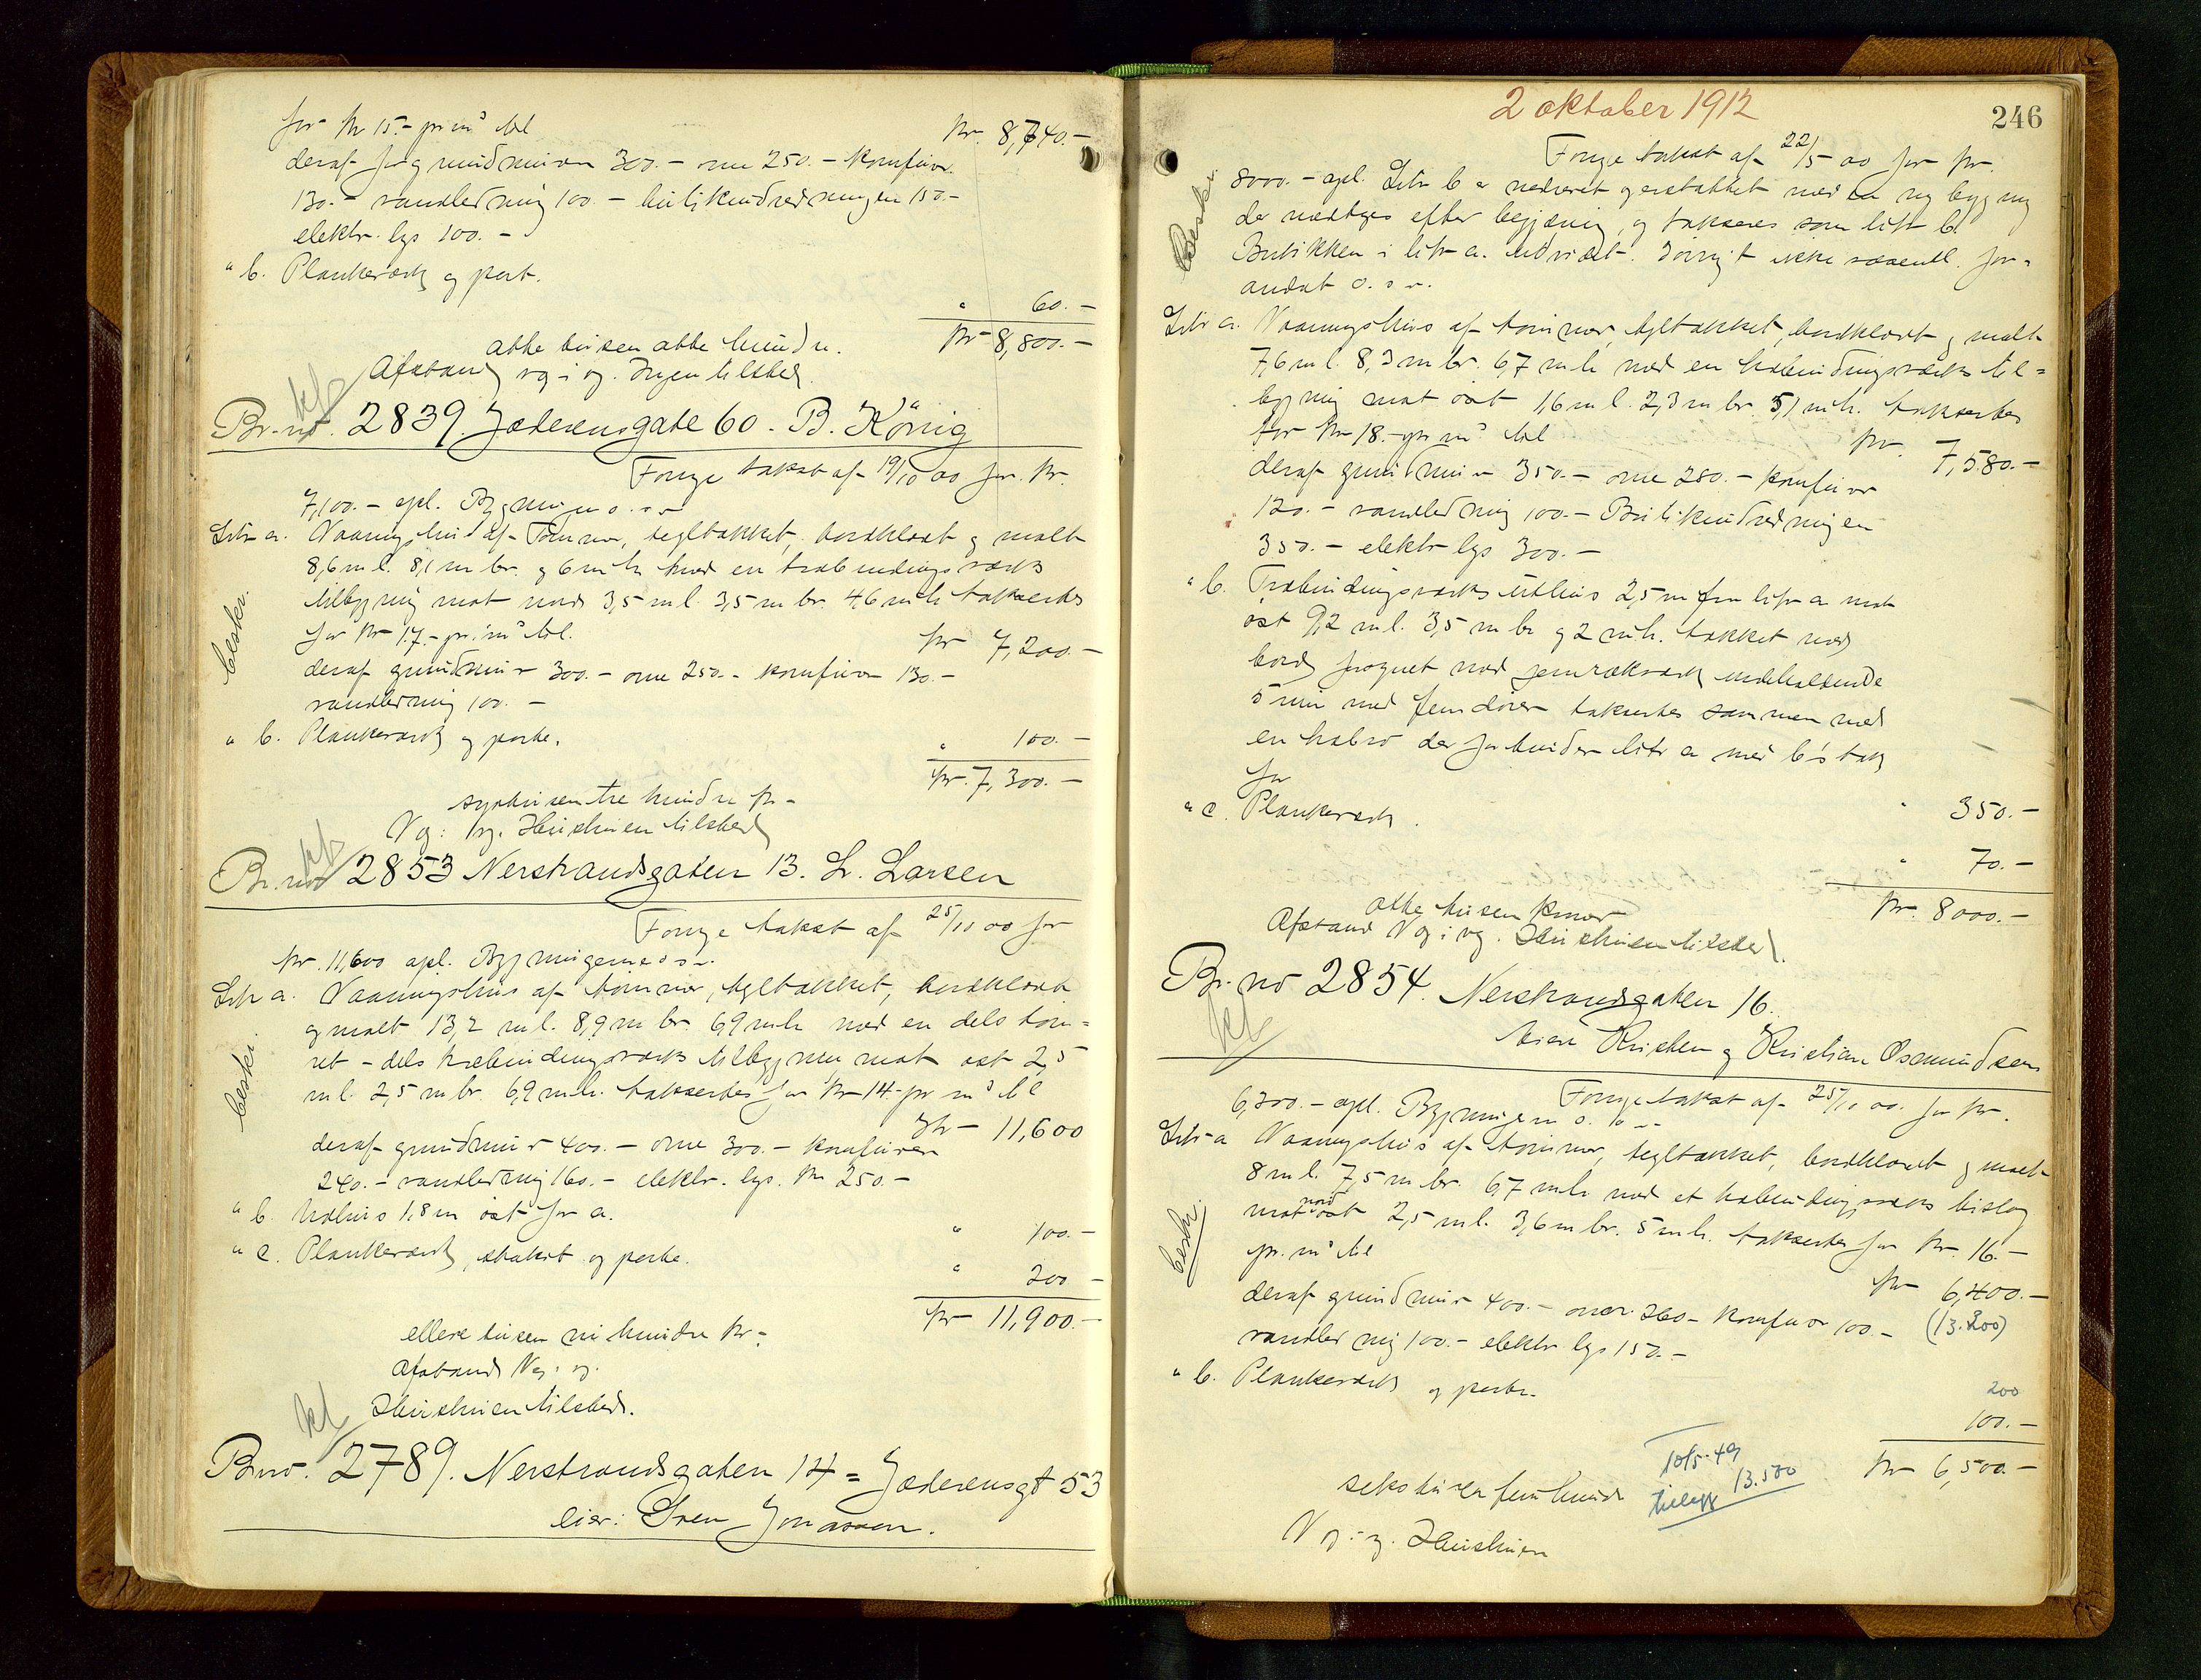 for kr 15.- pr m³ til
kr 8,740.-
deraf for grundmuren 300.- ovne 250.- komfurer
130.- vandledning 100.- butikindredningen 150.-
elektr. lys 100.-
" b. Plankeværk og port.
" 60.-
kr 8,800.-
otte tusen otte hundre.
Afstand vg i vg. Ingen tilsted.
Br. no. 2839. Jæderensgate 60. B. König
Forrige takst af 19/10 00 for kr.
7,100.- opl. Bygningen o.s.v.
Litr a. Vaaningshus af Tømmer, tegltækket, bordklædt og malt
8,6 m l. 8,1 m br. og 6 m h. med en træbindingsværks
tilbygning mot nord 3,5 m l. 3,5 m br. 4,6 m h. takseertes
for kr 17.- pr m³ til.
kr 7,200.-
beskr.
deraf grundmur 300.- ovne 250.- komfurer 130.-
vandledning 100.-
" b. Plankeværk og porte.
" 100.-
kr. 7,300.-
syvtusen tre hundre kr.-
Vg: vg. Hustruen tilsted
Br. no 2853 Nerstrandsgaten 13. L. Larsen
Forrige takst af 25/10 00 for
kr. 11,600 opl. Bygningerne o s v.
Litr a. Vaaningshus af tømmer, tegltækket, bordklædt
og malt 13,2 m l. 8,9 m br. 6,9 m h. med en dels tøm-
ret - dels træbindingsværks tilbygning mot øst 2,5
m l. 2,5 m br. 6,2 m h. takseertes for kr 14.- pr m³ til
beskr.
kr - 11,600
deraf grundmur 400.- ovne 300.- komfurer
240.- vandledning 160.- elektr. lys. kr 250.-
" b. Uthus 1,8 m øst for a.
" 100.-
" c. Plankeværk, stakit og porte.
" 200.-
kr 11,900.-
elleve tusen ni hundre kr.-
Afstand Vg: vg.
Hustruen tilsted.
Br no. 2789. Nerstrandsgaten 14 = Jæderensgt 53
eier: Sven Jonassen.
2 oktober 1912
246
Forrige takst af 22/5 00 for kr.
8000.- opl. Litr b er nedrevet og erstattet med en ny bygning
der medtages efter begjæring, og takseres som litr b.
Butikken i litr a. utvidet. Øvrigt ikke væsentl. for-
andret o.s.v.
Beskr.
Litr a. Vaaningshus af tømmer, tegltækket, bordklædt og malt
7,6 m l. 8,3 m br. 6,7 m h. med en træbindingsværks til-
bygning mot øst 1,6 m l. 2,3 m br. 5,1 m h. takseertes
for kr 18.- pr m³ til
kr. 7,580.-
deraf grundmur 350.- ovne 280.- komfurer
120.- vandledning 100.- Butikindredningen
350.- elektr lys 300.-
" b. Træbindingsværks uthus 2,5 m fra litr a mot
øst 9,2 m l. 3,5 m br og 2 m h. tækket med
bord forøvrigt med rækværk indeholdende
5 rum med fem dører takseertes sammen med
en træbro der forbinder litr a med b's tak
for
" 350.-
" c. Plankeværk.
" 70.-
kr. 8000.-
otte tusen kroner
Afstand Vg i vg. Hustruen tilsted.
Br. no 2854. Nerstrandsgaten 16.
eiere Kristen og Kristian Osmundsen
Forrige takst af 25/10 00. for kr.
6,300.- opl. Bygningen o.s.v.
Litr a Vaaningshus af tømmer, tegltækket, bordklædt og malt
8 m l. 7,5 m br. 6,7 m h. med et træbindingsværks bislag
mot nord øst 2,5 m l. 3,6 m br. 5 m h. takseertes for kr. 16.-
pr. m³ til
beskr.
kr 6,400.-
deraf grundmur 400.- ovner 260.- komfurer 100.-
(13.300)
vandledning 100.- elektr lys 150.-
" b. Plankeværk og porte.
200
100.-
kr 6,500.-
10/5-49
tillegg 13.500
seks tusen fem hundre
Vg: vg. Hustruen